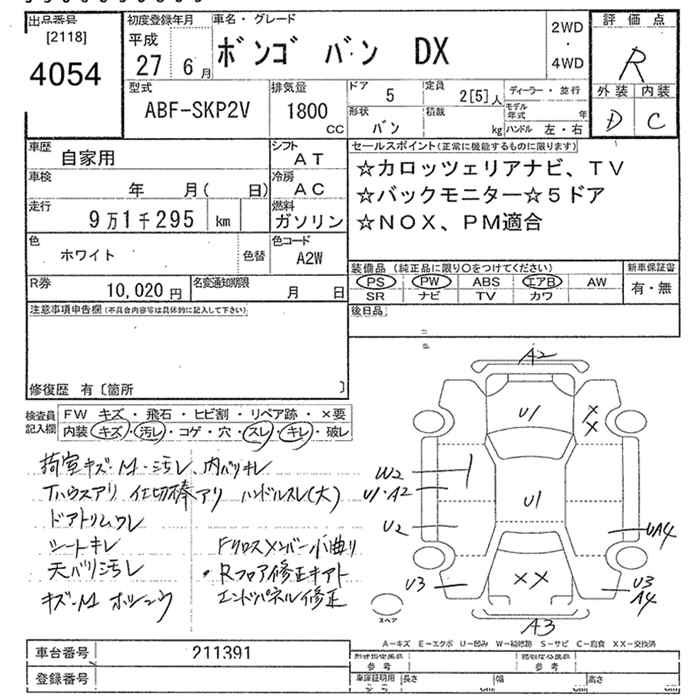 出品番号
[2118]
4054
初度登録年月
平成
27 6月
車名・グレード
ボンゴ バン DX
2WD
・
4WD
評価点
R
外装 内装
D C
型式
ABF-SKP2V
排気量
1800
CC
ドア
5
定員
2[5]人
形状
バン
積載
kg
ディーラー・並行
モデル
年式 年
ハンドル 左・右
車歴
自家用
シフト
AT
車検
年 月( 日)
冷房
AC
走行
9万1千295 km
燃料
ガソリン
色
ホワイト
色替
色コード
A2W
R券
10,020円
名変通知期限
月 日
セールスポイント(正常に機能するものに限ります)
☆カロッツェリアナビ、TV
☆バックモニター☆5ドア
☆NOX、PM適合
装備品(純正品に限り○をつけてください)
PS PW ABS エアB AW
SR ナビ TV カワ
新車保証書
有・無
後日品
注意事項申告欄(不具合内容等は具体的に記入して下さい)
修復歴 有〔箇所 〕
検査員
記入欄
FW キズ・飛石・ヒビ割・リペア跡・×要
内装 キズ・汚レ・コゲ・穴・スレ・キレ・破レ
荷室キズ・M・汚レ、内バリキレ
Tハウスアリ 仕切棒アリ ハンドルスレ(大)
ドアトリムワレ
シートキレ
天バリ汚レ
Fクロスメンバー小曲り
・Rフロア修正キアト
エンドパネル修正
A2
U1
X
X
W2
U1・A2
U1
U2
UA4
U3
XX
U3
A4
A3
スペア
A―キズ E―エクボ U―凹み W―補修跡 S―サビ C―腐食 XX―交換済
車台番号
211391
登録番号
参考
参考
車庫証明用
長さ
幅
高さ